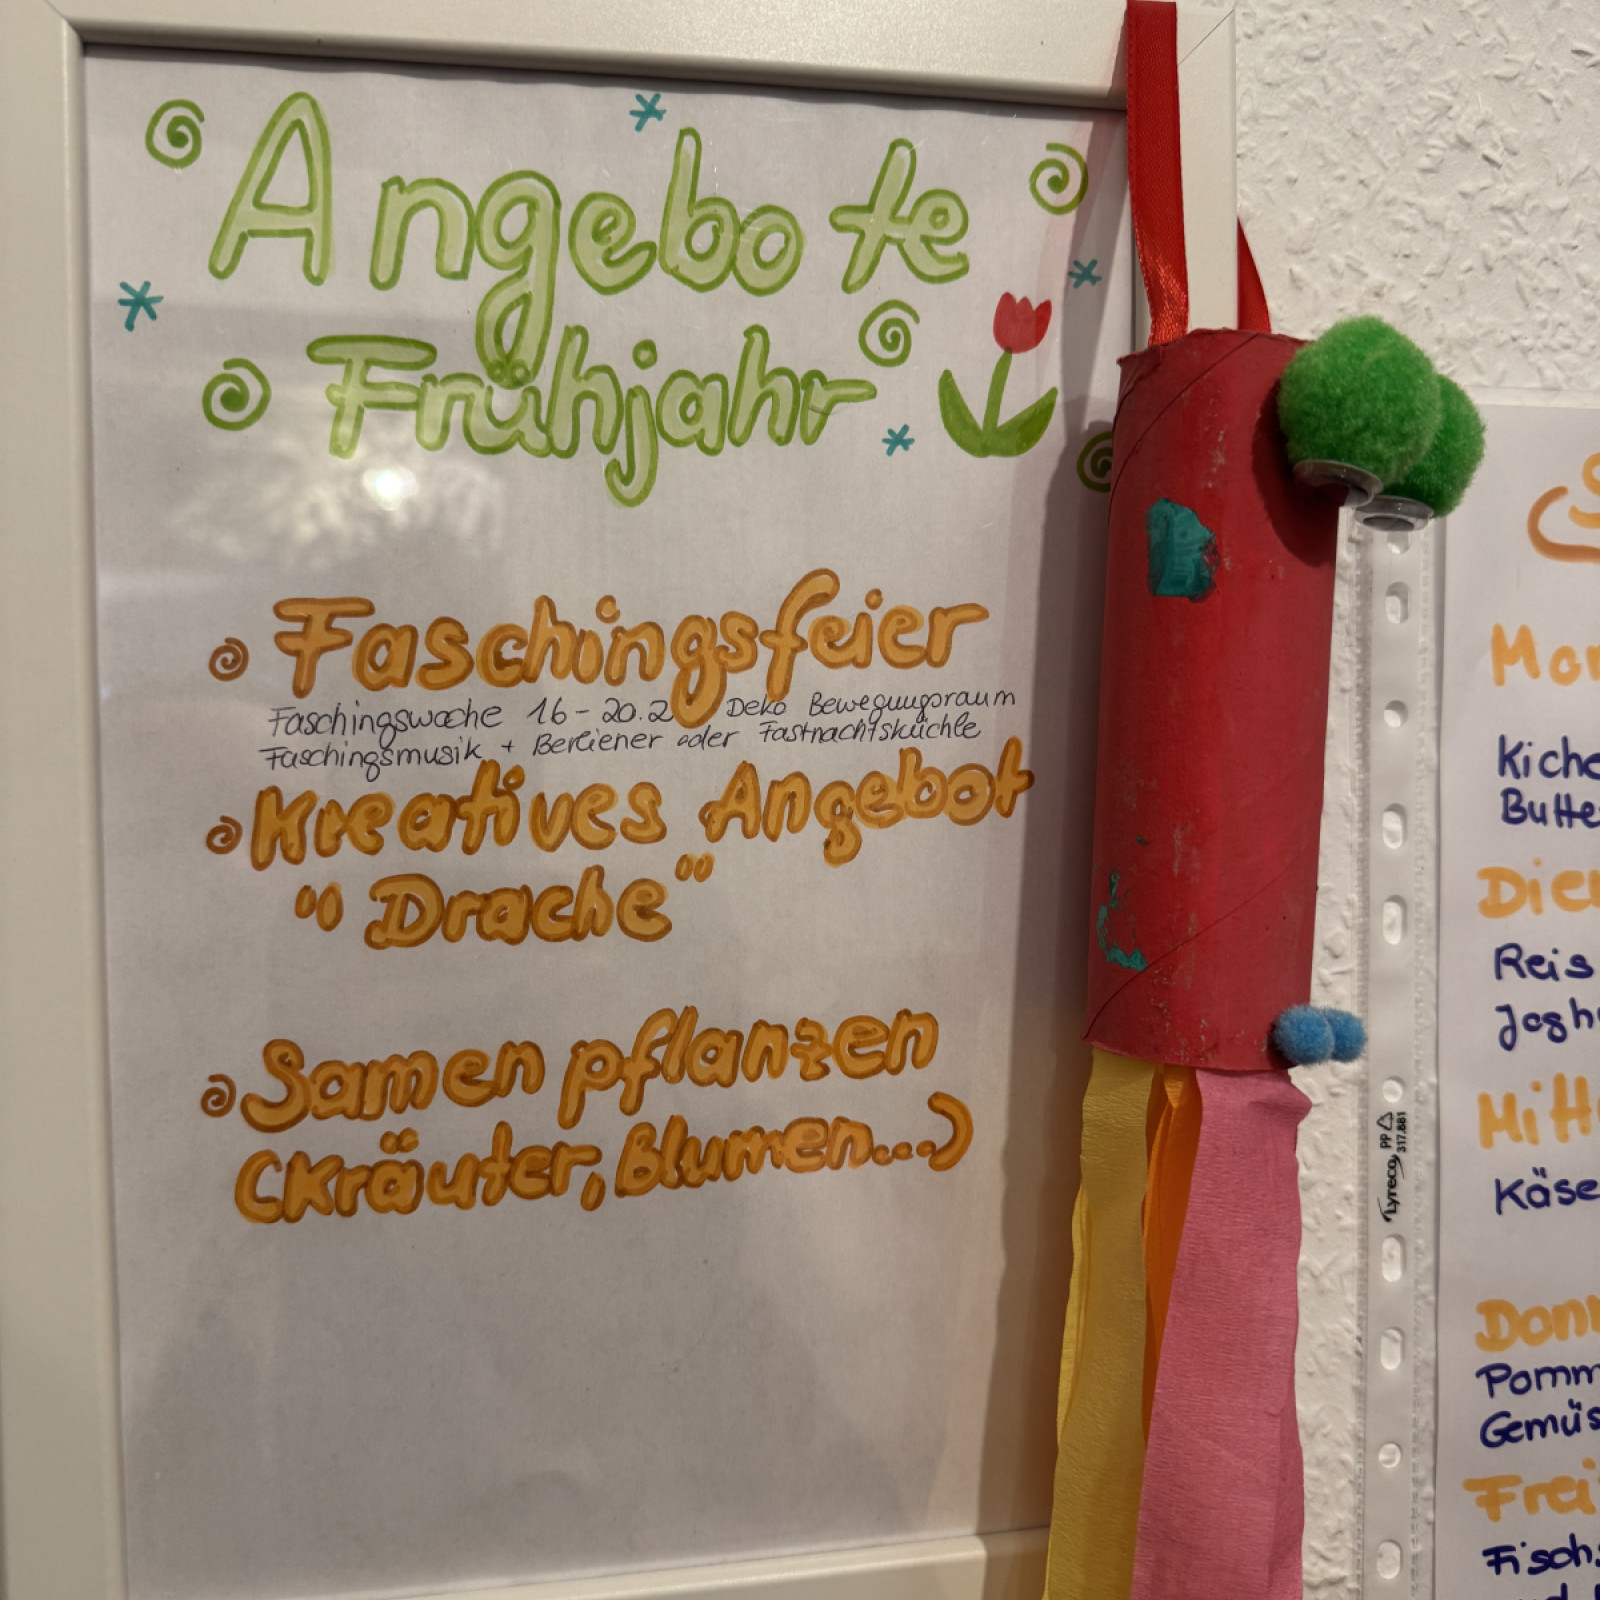 Angebote
Frühjahr
Faschingsfeier
Faschingswoche 16-20.2 Deko Bewegungsraum
Faschingsmusik + Berliener oder Fastnachtsküchle
Kreatives Angebot
"Drache"
Samen pflanzen
(Kräuter, Blumen...)
Mon
Kiche
Butte
Dien
Reis
Jogh
Mitt
Käse
Donn
Pomm
Gemüs
Frei
Fischs
Lyreco PP 317.881